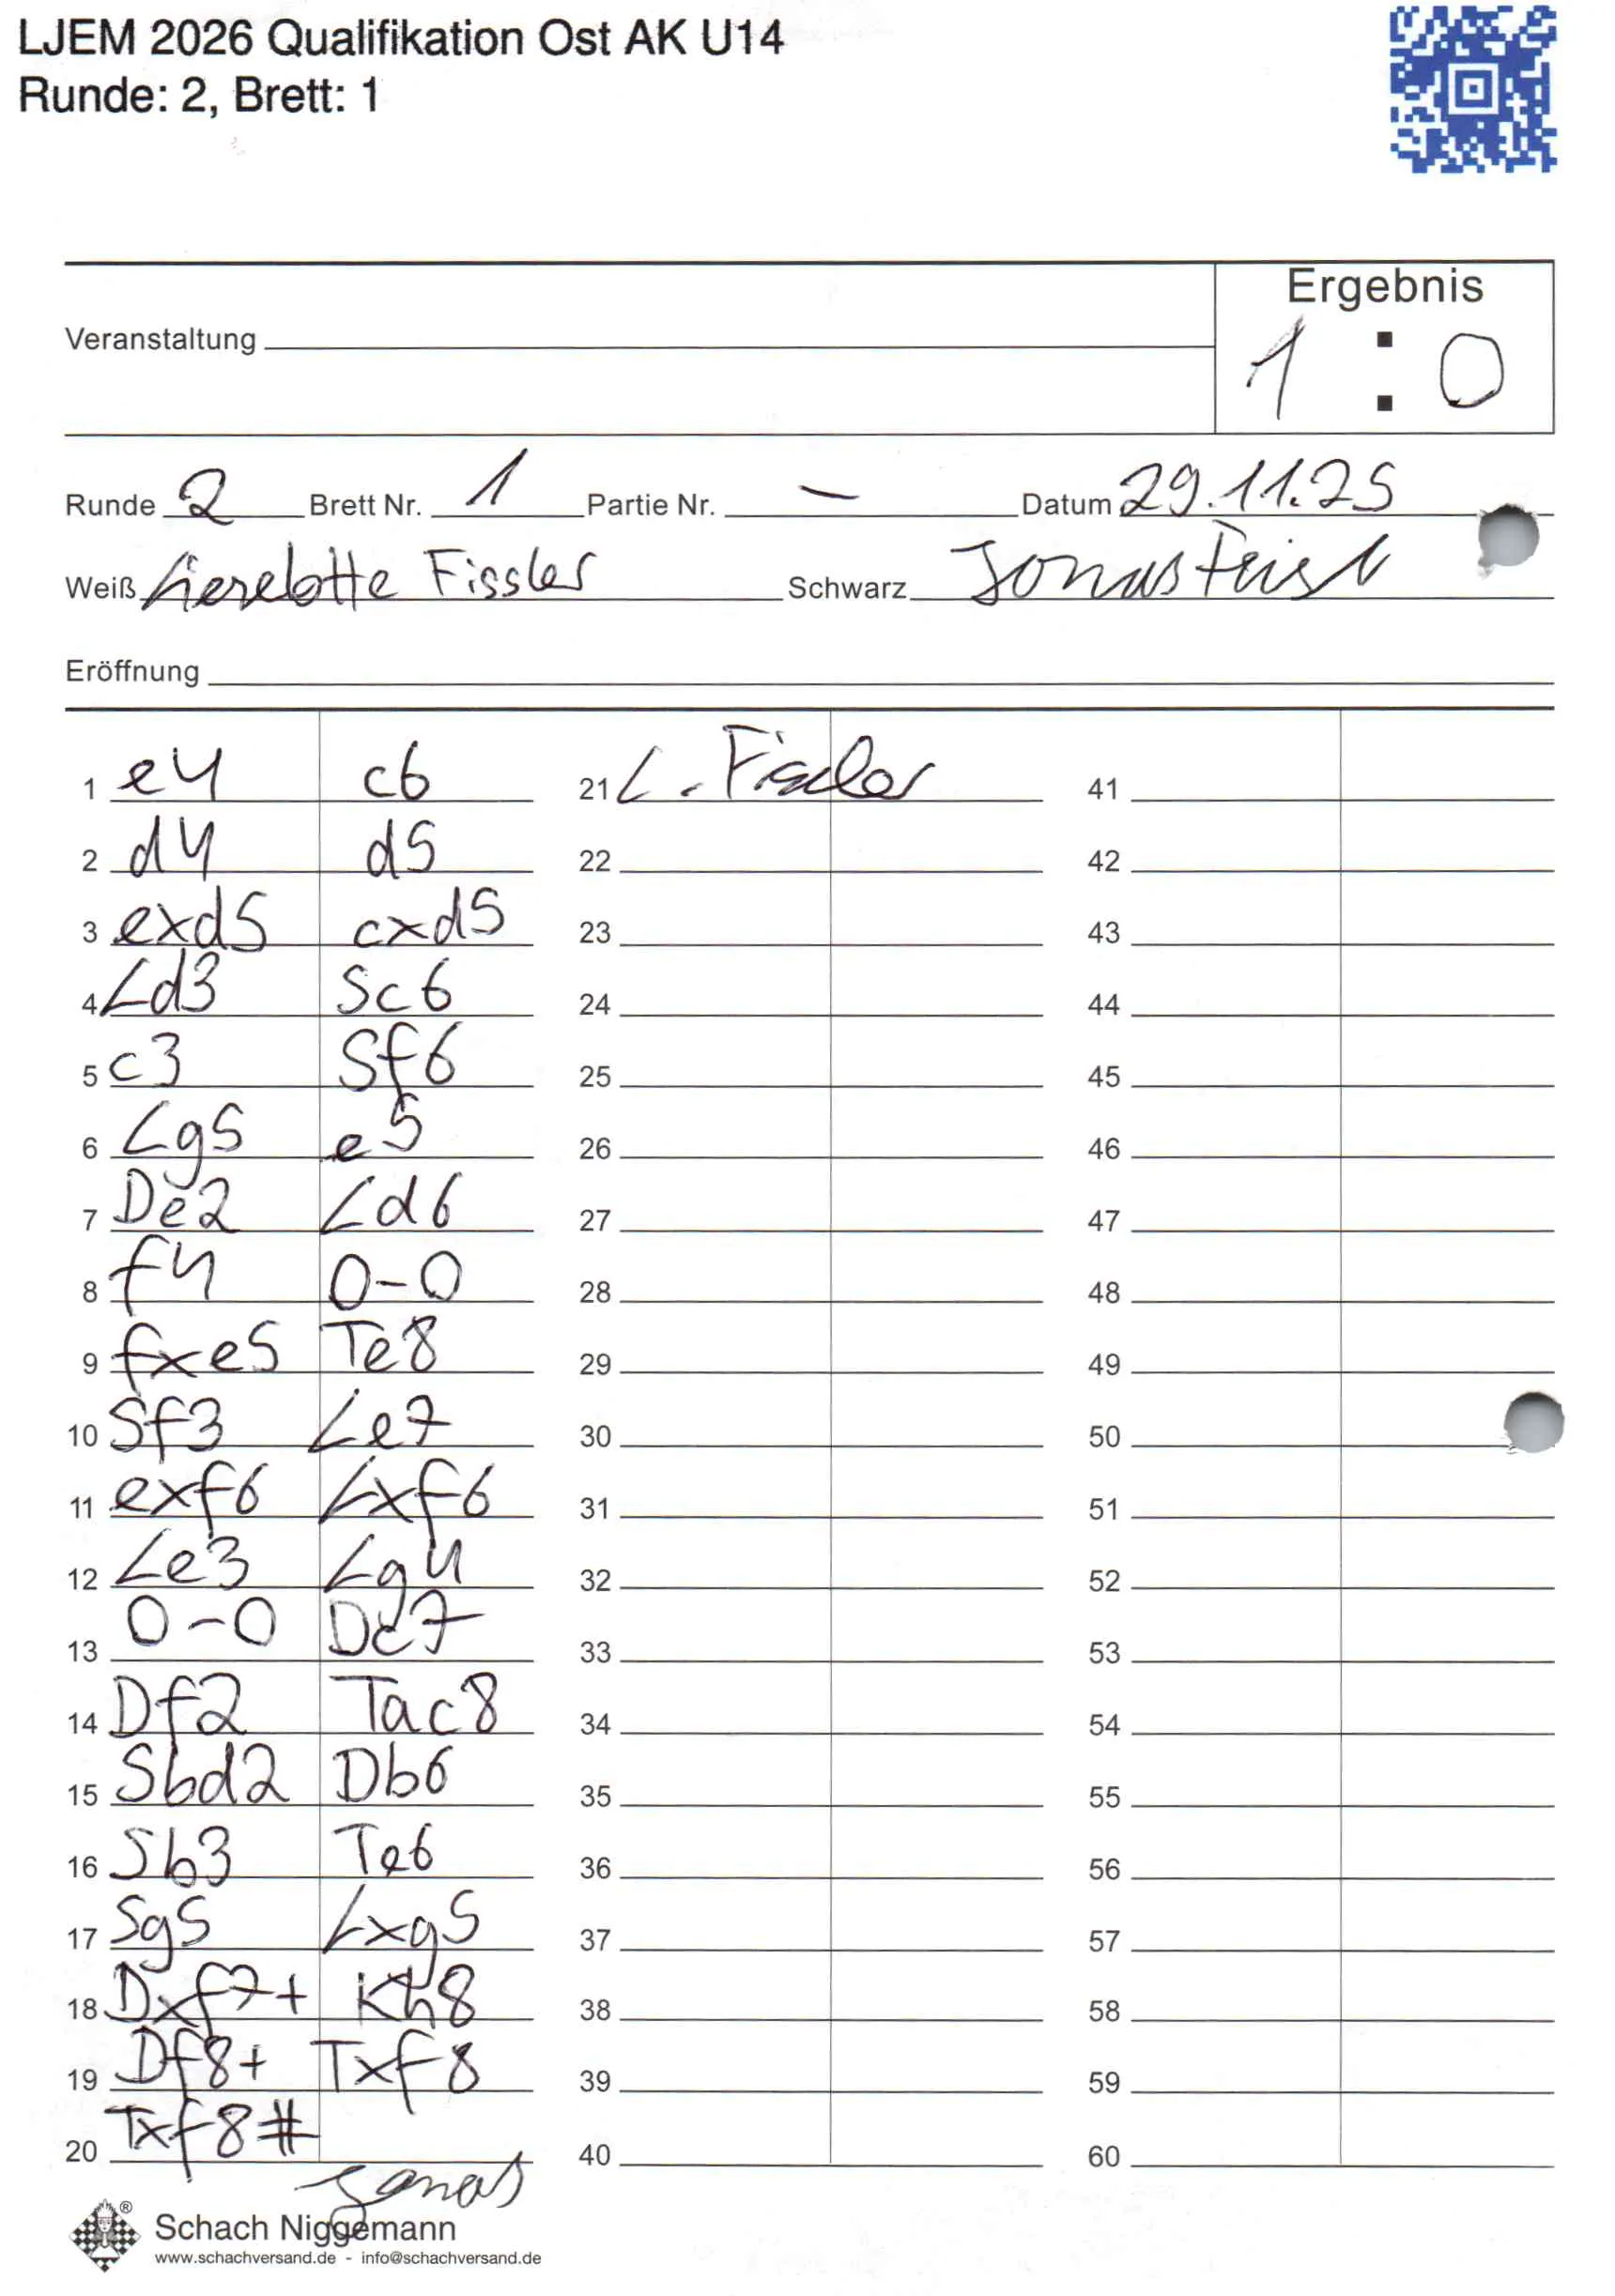 LJEM 2026 Qualifikation Ost AK U14
Runde: 2, Brett: 1
Ergebnis
1 : 0
Veranstaltung
Runde 2 Brett Nr. 1 Partie Nr. – Datum 29.11.25
Weiß Lieselotte Fissler Schwarz Jonas
Eröffnung
1 e4 c6 21 L. Fissler 41
2 d4 d5 22 42
3 exd5 cxd5 23 43
4 Ld3 Sc6 24 44
5 c3 Sf6 25 45
6 Lg5 e5 26 46
7 De2 Ld6 27 47
8 f4 0-0 28 48
9 fxe5 Te8 29 49
10 Sf3 Le7 30 50
11 exf6 Lxf6 31 51
12 Le3 Lg4 32 52
13 0-0 Dc7 33 53
14 Df2 Tac8 34 54
15 Sbd2 Db6 35 55
16 Sb3 Te6 36 56
17 Sg5 Lxg5 37 57
18 Dxf7+ Kh8 38 58
19 Df8+ Txf8 39 59
20 Txf8# 40 60
Jonas
Schach Niggemann
www.schachversand.de - info@schachversand.de